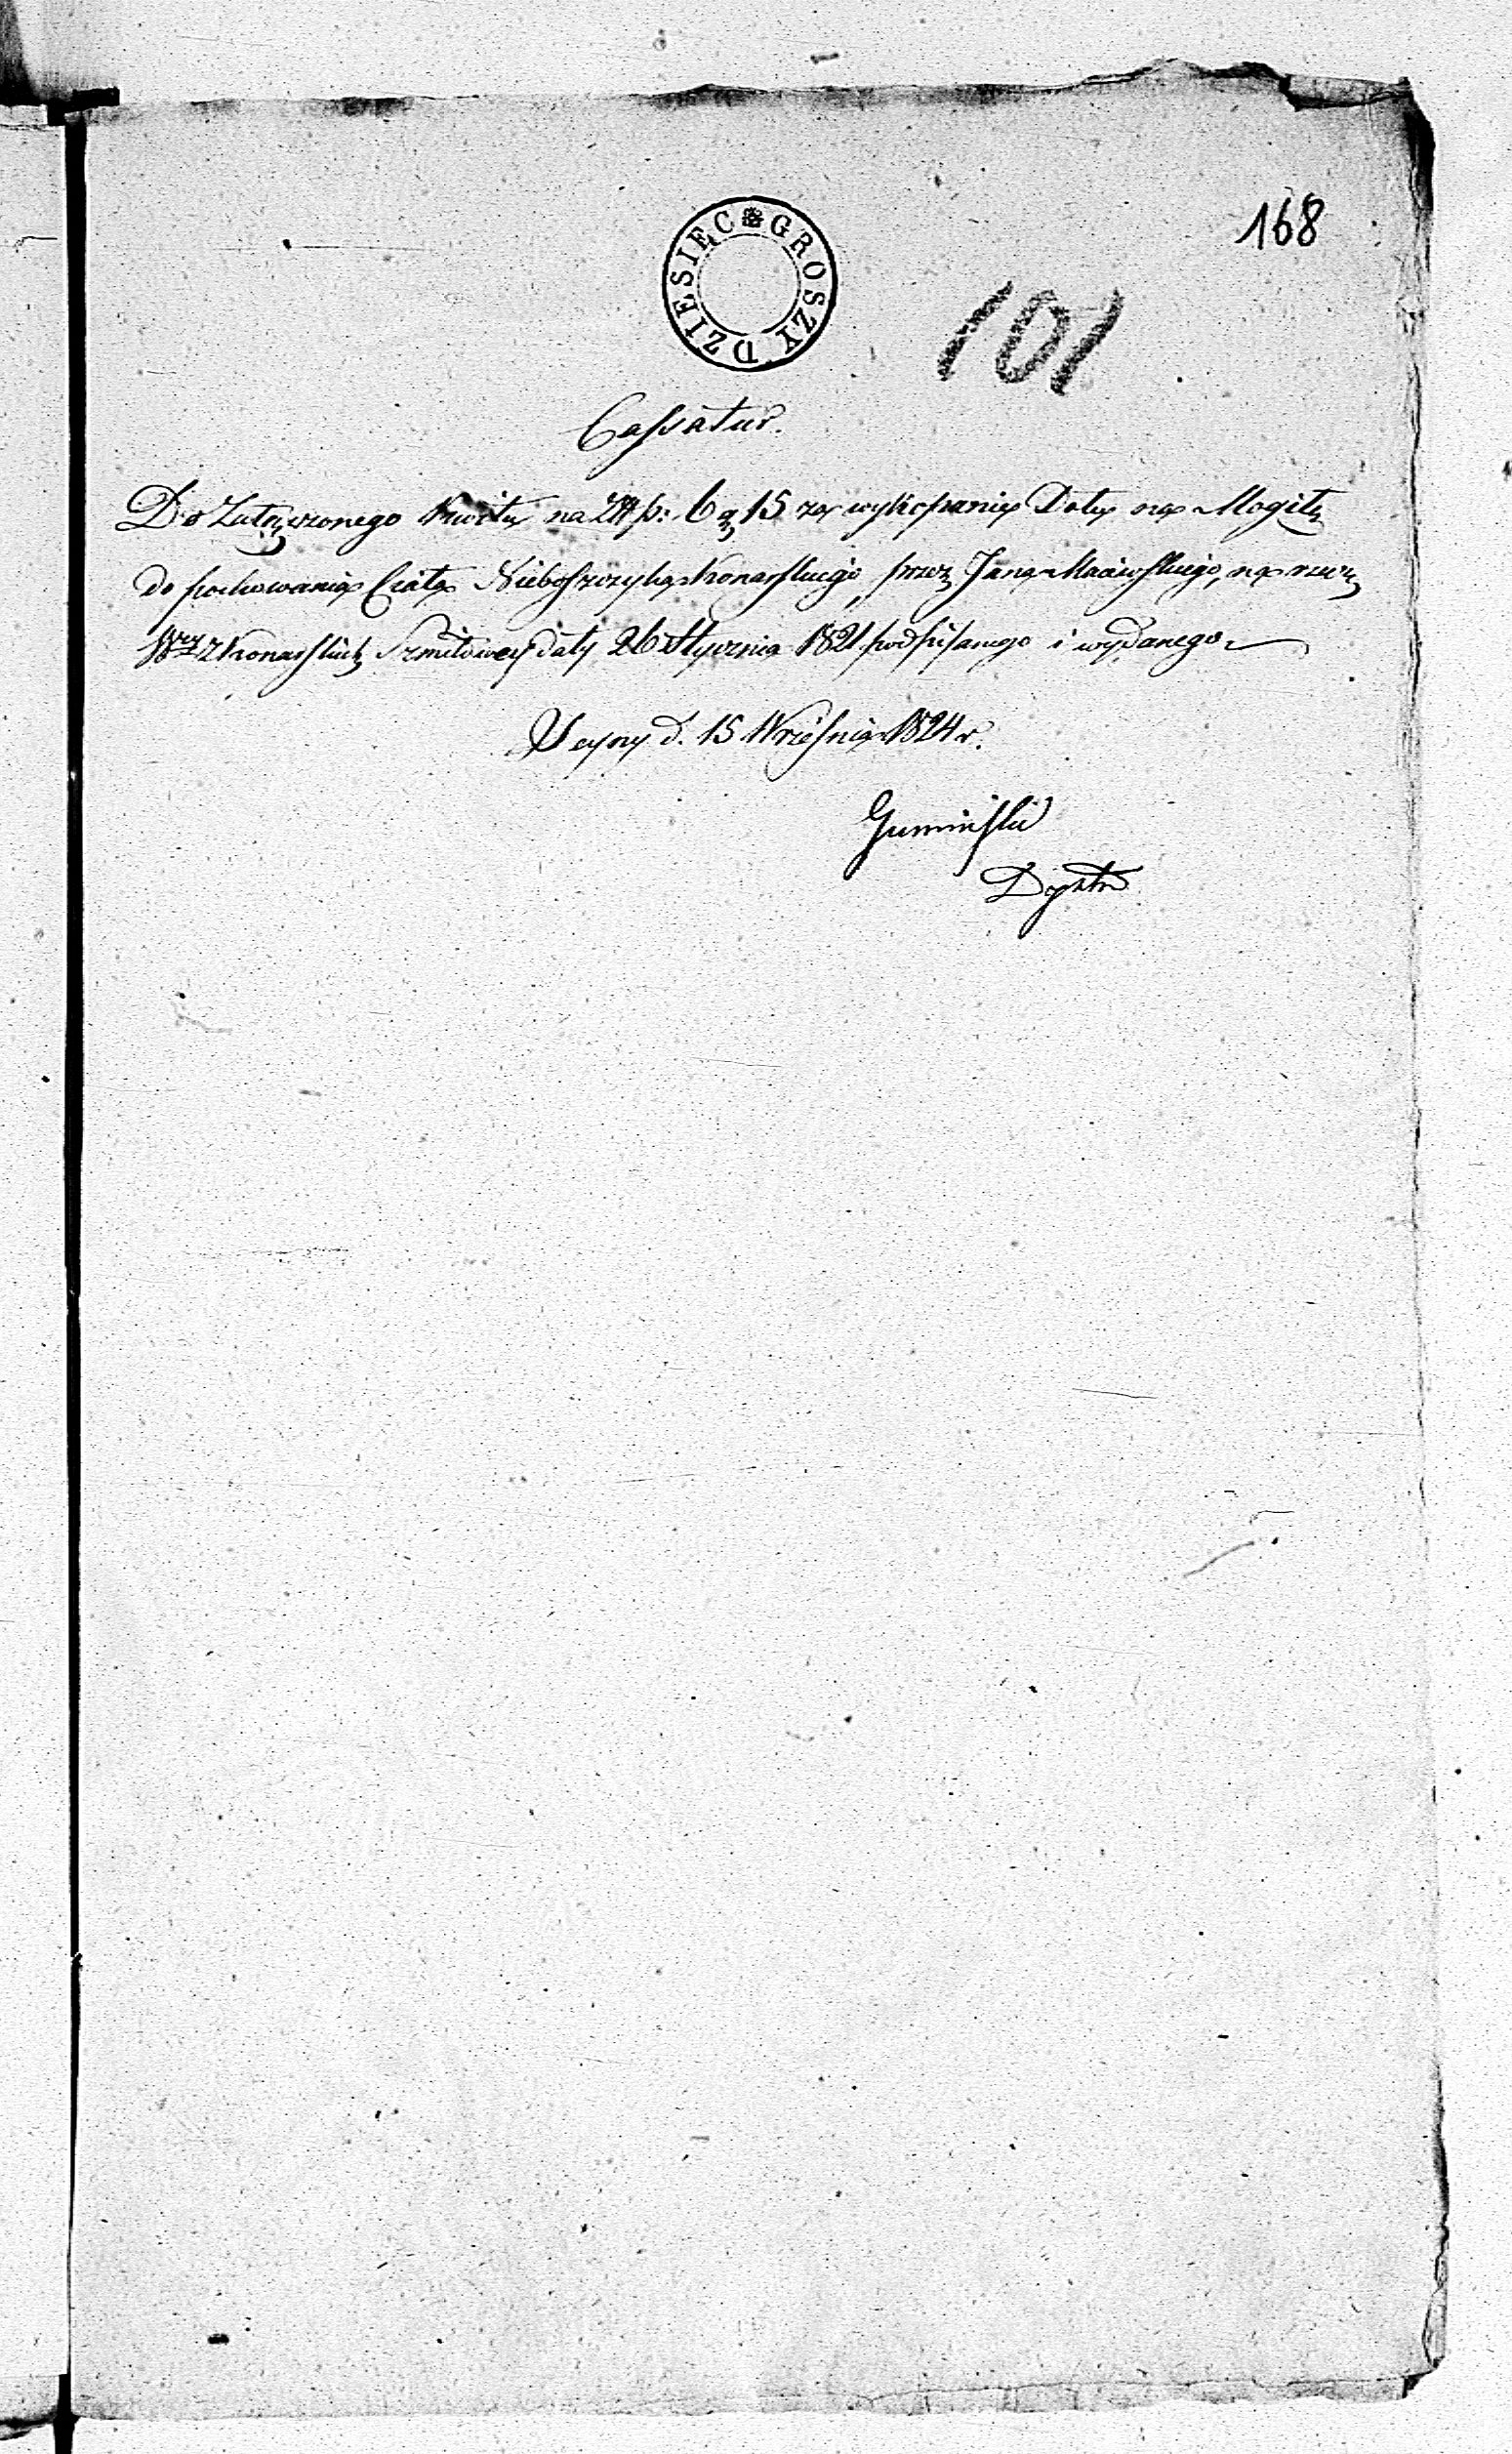 168
GROSZY DZIESIĘC
101
Cassatur.
Do Załączonego Kwitu na Złp: 6 g 15 za wykopanie Dołu na Mogiłę
do pochowania Ciała Nieboszczyka Konarskiego, przez Jana Maciewskiego, na rzecz
z Konarskich daty 26 Stycznia 1821 podpisanego i wydanego
Seyny d. 15 Września 1824 r.
Gumiński